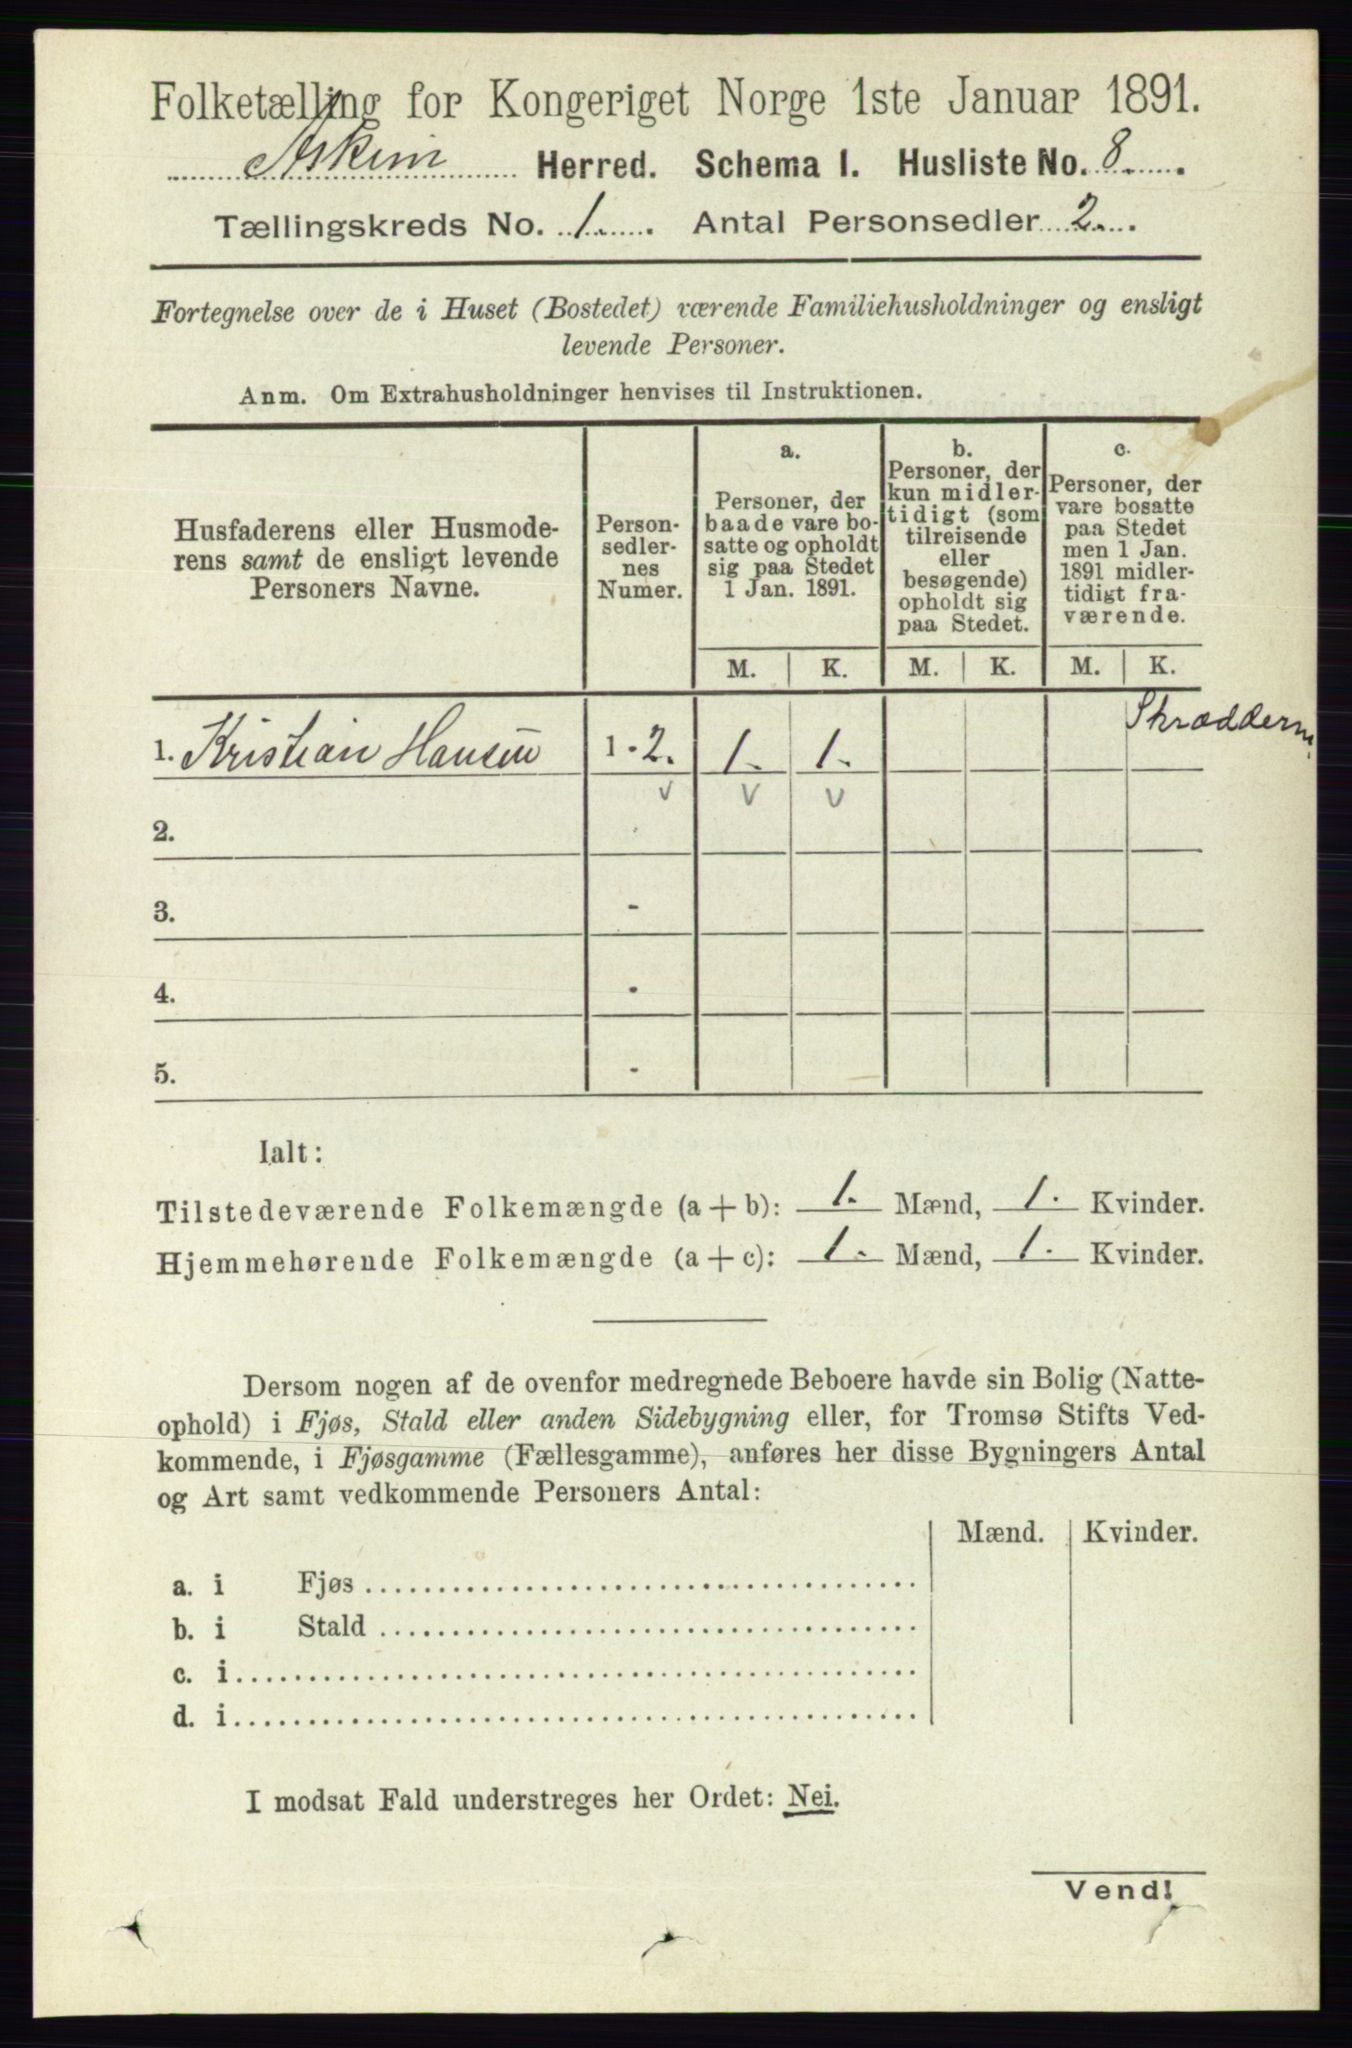 Folketælling for Kongeriget Norge 1ste Januar 1891.
Askim Herred. Schema 1. Husliste No. 8.
Tællingskreds No. 1. Antal Personsedler 2.
Fortegnelse over de i Huset (Bostedet) værende Familiehusholdninger og ensligt
levende Personer.
Anm. Om Extrahusholdninger henvises til Instruktionen.
Husfaderens eller Husmode-
rens samt de ensligt levende
Personers Navne.
Person-
sedler-
nes
Numer.
a.
Personer, der
baade vare bo-
satte og opholdt
sig paa Stedet
1 Jan. 1891.
b.
Personer, der
kun midler-
tidigt (som
tilreisende
eller
besøgende)
opholdt sig
paa Stedet.
c.
Personer, der
vare bosatte
paa Stedet
men 1 Jan.
1891 midler-
tidigt fra-
værende.
M. K. M. K. M. K.
1. Kristian Hansen 1 - 2. 1. 1. Skræddern.
v v v
2.
3. -
4. -
5. -
Ialt:
Tilstedeværende Folkemængde (a + b): 1. Mænd, 1. Kvinder.
Hjemmehørende Folkemængde (a + c): 1. Mænd, 1. Kvinder.
Dersom nogen af de ovenfor medregnede Beboere havde sin Bolig (Natte-
ophold) i Fjøs, Stald eller anden Sidebygning eller, for Tromsø Stifts Ved-
kommende, i Fjøsgamme (Fællesgamme), anføres her disse Bygningers Antal
og Art samt vedkommende Personers Antal:
Mænd. Kvinder.
a. i Fjøs
b. i Stald
c. i
d. i
I modsat Fald understreges her Ordet: Nei.
Vend!